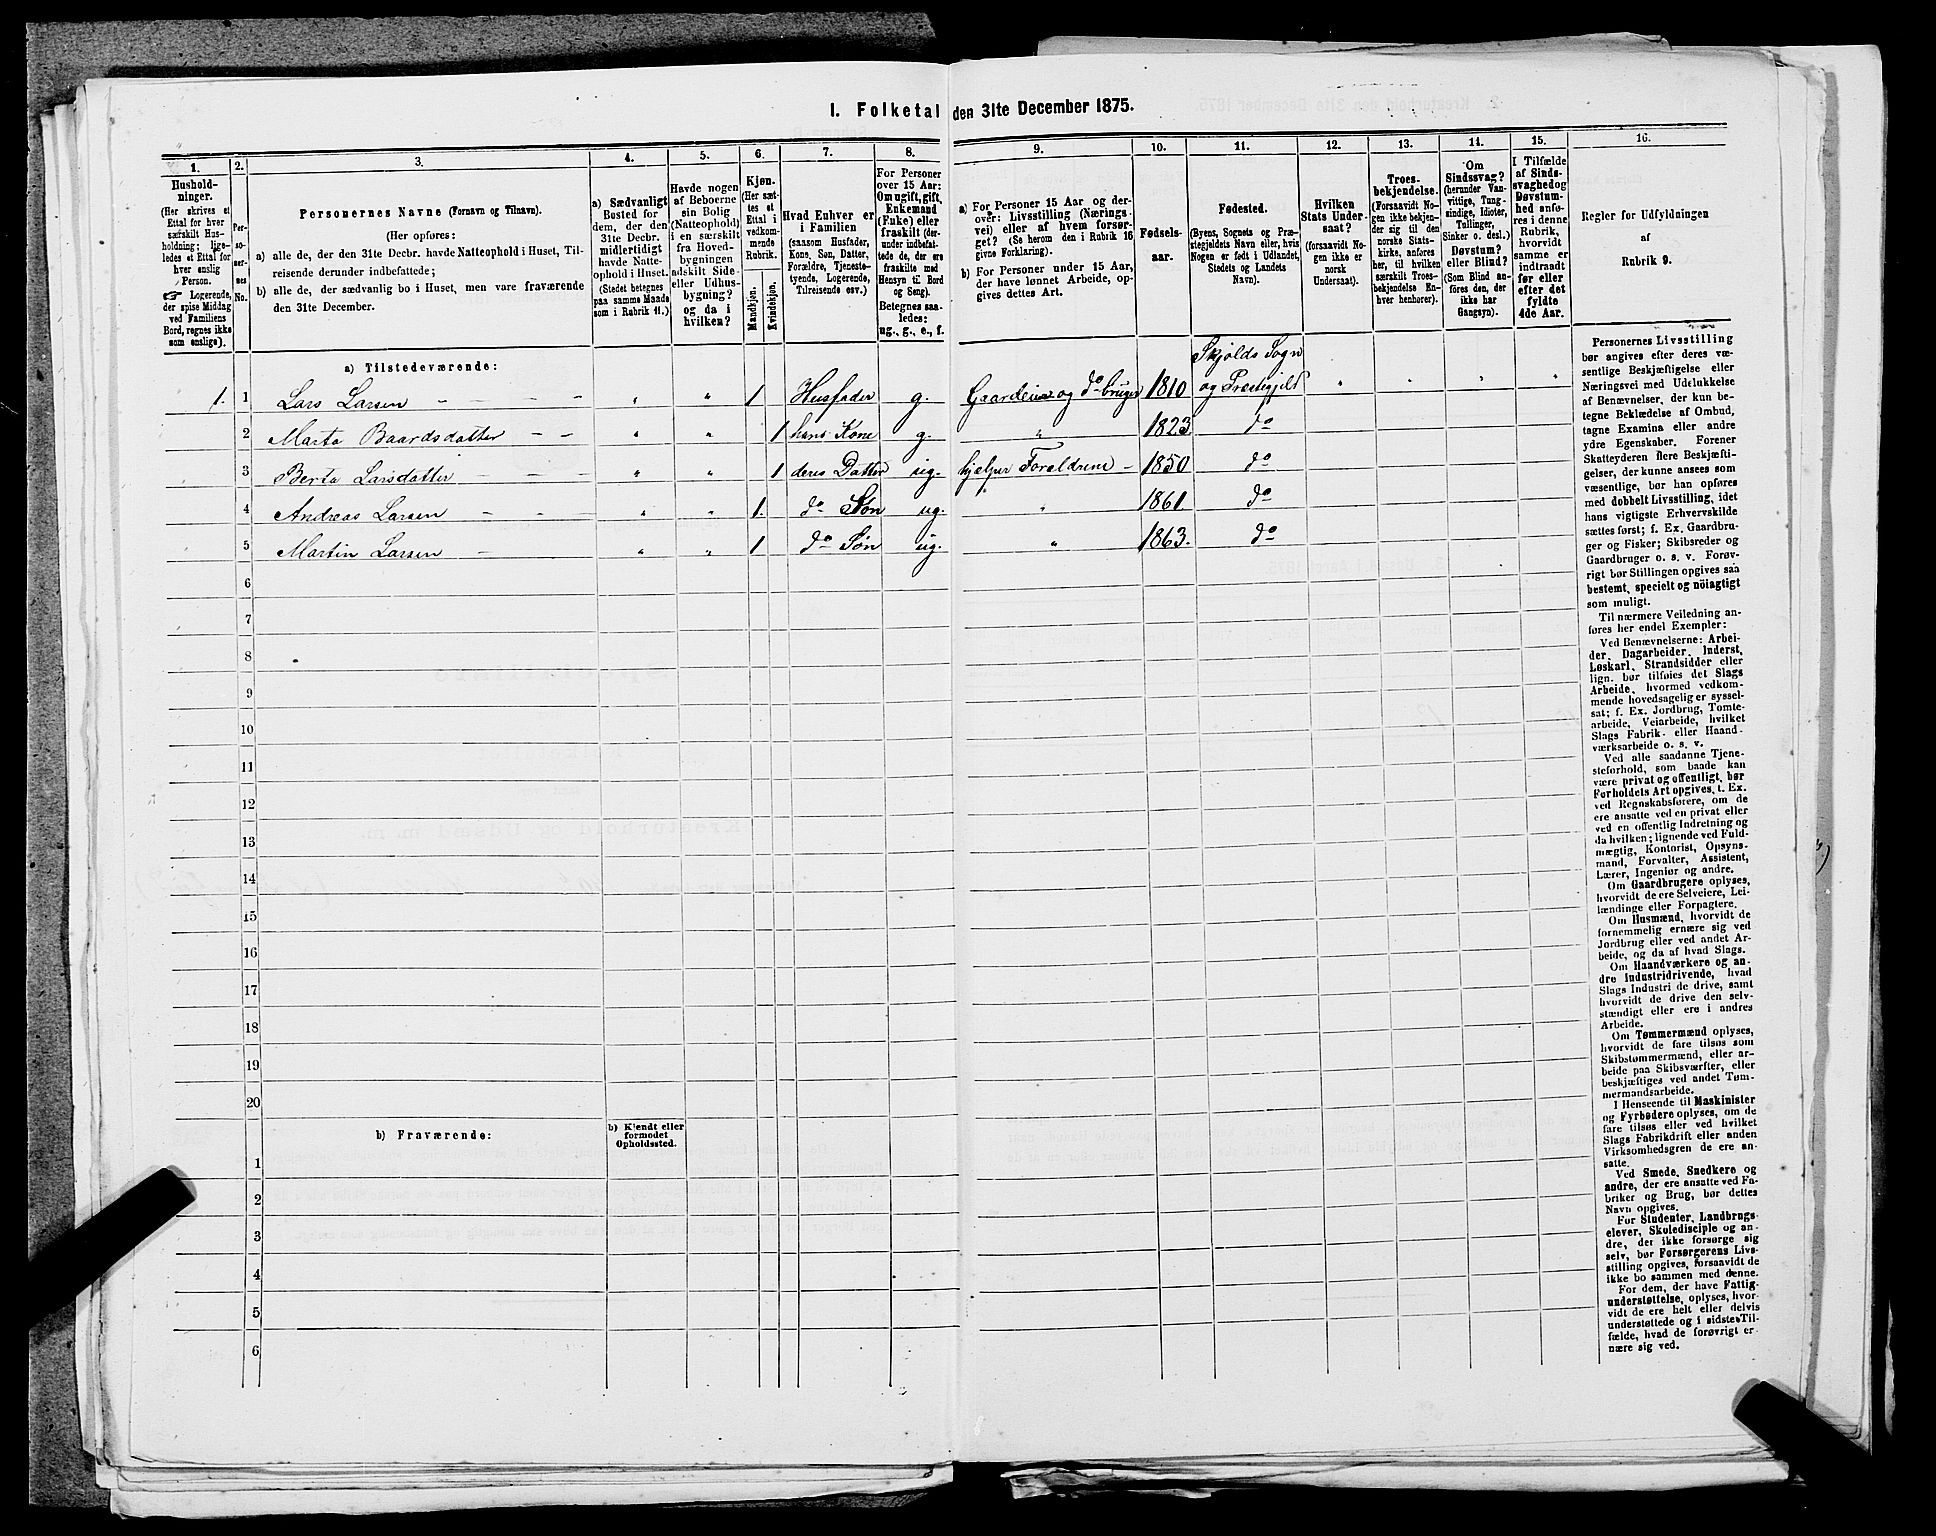 I. Folketal den 31te December 1875.
1. 2. 3. 4. 5. 6. 7. 8. 9. 10. 11. 12. 13. 14. 15. 16.
Hushold-
ninger.
(Her skrives et
Ettal for hver
særskilt Hus-
holdning; lige-
ledes et Ettal for
hver enslig
Person.
☞ Logerende,
der spise Middag
ved Familiens
Bord, regnes ikke
som enslige).
Per-
so-
ner-
nes
No.
Personernes Navne (Fornavn og Tilnavn).
(Her opføres:
a) alle de, der den 31te Decbr. havde Natteophold i Huset, Til-
reisende derunder indbefattede;
b) alle de, der sædvanlig bo i Huset, men vare fraværende
den 31te December.
a) Sædvanligt
Bosted for
dem, der den
31te Decbr.
midlertidigt
havde Natte-
ophold i Huset.
(Stedet betegnes
paa samme Maade
som i Rubrik 11.)
Havde nogen
af Beboerne
sin Bolig
(Natteophold)
i en særskilt
fra Hoved-
bygningen
adskilt Side-
eller Udhus-
bygning?
og da i
hvilken?
Kjøn.
(Her sæt-
tes et
Ettal i
vedkom-
mende
Rubrik.
Mandkjøn.
Kvindekjøn.
Hvad Enhver er
i Familien
(saasom Husfader,
Kone, Søn, Datter,
Forældre, Tjeneste-
tyende, Logerende,
Tilreisende osv.)
For Personer
over 15 Aar:
Om ugift, gift,
Enkemand
(Enke) eller
fraskilt (der-
under indbefat-
tede de, der ere
fraskilte med
Hensyn til Bord
og Seng).
Betegnes saa-
ledes:
ug., g., e., f.
a) For Personer 15 Aar og der-
over: Livsstilling (Nærings-
vei) eller af hvem forsør-
get? (Se herom den i Rubrik 16
givne Forklaring).
b) For Personer under 15 Aar,
der have lønnet Arbeide, op-
gives dettes Art.
Fødsels-
aar.
Fødested.
(Byens, Sognets og Præ-
stegjeldets Navn eller, hvis
Nogen er født i Udlandet,
Stedets og Landets
Navn).
Hvilken
Stats Under-
saat?
(forsaavidt No-
gen ikke er
norsk
Undersaat).
Troes-
bekjendelse.
(Forsaavidt No-
gen ikke bekjen-
der sig til den
norske Stats-
kirke, anføres
her, til hvilken
særskilt Troes-
bekjendelse En-
hver henhører).
Om
Sindssvag?
(herunder Van-
vittige, Tung-
sindige, Idioter,
Tullinger,
Sinker o. desl.)
Døvstum?
eller Blind?
(Som Blind an-
føres den, der
ikke har
Gangsyn).
I Tilfælde
af Sinds-
svaghed og
Døvstum-
hed anfø-
res i denne
Rubrik,
hvorvidt
samme er
indtraadt
før eller
efter det
fyldte
4de Aar.
Regler for Udfyldningen
af
Rubrik 9.
a) Tilstedeværende:
Skjolds Sogn
1. 1 Lars Larsen - - - - " " 1 Husfader g. Gaardeier og do bruger 1810 og Prestegjeld " " " "
2 Marta Baardsdatter - - " " 1 hans Kone g. " 1823 do
3 Berta Larsdatter - - - " " 1 deres Datter ug. hjelper Foreldrene - 1850 do
4 Andreas Larsen - - " " 1. do Søn ug. " 1861. do
5 Martin Larsen - " " 1 do Søn ug. " 1863. do
6
7
8
9
10
11
12
13
14
15
16
17
18
19
20
b) Fraværende:
b) Kjendt eller
formodet
Opholdssted.
1
2
3
4
5
6
Personernes Livsstilling
bør angives efter deres væ-
sentlige Beskjæftigelse eller
Næringsvei med Udelukkelse
af Benævnelser, der kun be-
tegne Beklædelse af Ombud,
tagne Examina eller andre
ydre Egenskaber. Forener
Skatteyderen flere Beskjæfti-
gelser, der kunne ansees som
væsentlige, bør han opføres
med dobbelt Livsstilling, idet
hans vigtigste Erhvervskilde
sættes først; f. Ex. Gaardbru-
ger og Fisker; Skibsreder og
Gaardbruger o. s. v. Forøv-
rigt bør Stillingen opgives saa
bestemt, specielt og nöiagtigt
som muligt.
Til nærmere Veiledning an-
føres her endel Exempler:
Ved Benævnelserne: Arbei-
der, Dagarbeider, Inderst,
Løskarl, Strandsidder eller
lign. bør tilføies det Slags
Arbeide, hvormed vedkom-
mende hovedsagelig er syssel-
sat; f. Ex. Jordbrug, Tomte-
arbeide, Veiarbeide, hvilket
Slags Fabrik- eller Haand-
værksarbeide o. s. v.
Ved alle saadanne Tjene-
steforhold, som baade kan
være privat og offentligt, bør
Forholdets Art opgives, t. Ex.
ved Regnskabsførere, om de
ere ansatte ved en privat eller
ved en offentlig Indretning og
da hvilken; lignende ved Fuld-
mægtig, Kontorist, Opsyns-
mand, Forvalter, Assistent,
Lærer, Ingeniør og andre.
Om Gaardbrugere oplyses,
hvorvidt de ere Selveiere, Lei-
lændinge eller Forpagtere.
Om Husmænd, hvorvidt de
fornemmelig ernære sig ved
Jordbrug eller ved andet Ar-
beide, og da af hvad Slags.
Om Haandværkere og an-
dre Industridrivende, hvad
Slags Industri de drive, samt
hvorvidt de drive den selv-
stændigt eller ere i andres
Arbeide.
Om Tømmermænd oplyses,
hvorvidt de fare tilsøs som
Skibstømmermænd, eller ar-
beide paa Skibsværfter, eller
beskjæftiges ved andet Tøm-
mermandsarbeide.
I Henseende til Maskinister
og Fyrbødere oplyses, om de
fare tilsøs eller ved hvilket
Slags Fabrikdrift eller anden
Virksomhedsgren de ere an-
satte.
Ved Smede, Snedkere og
andre, der ere ansatte ved Fa-
briker og Brug, bør dettes
Navn opgives.
For Studenter, Landbrugs-
elever, Skoledisciple og an-
dre, der ikke forsørge sig
selv, bør Forsørgerens Livs-
stilling opgives, forsaavidt de
ikke bo sammen med denne.
For dem, der have Fattig-
understøttelse, oplyses, hvor-
vidt de ere helt eller delvis
understøttede og i sidste Til-
fælde, hvad de forøvrigt er-
nære sig ved.